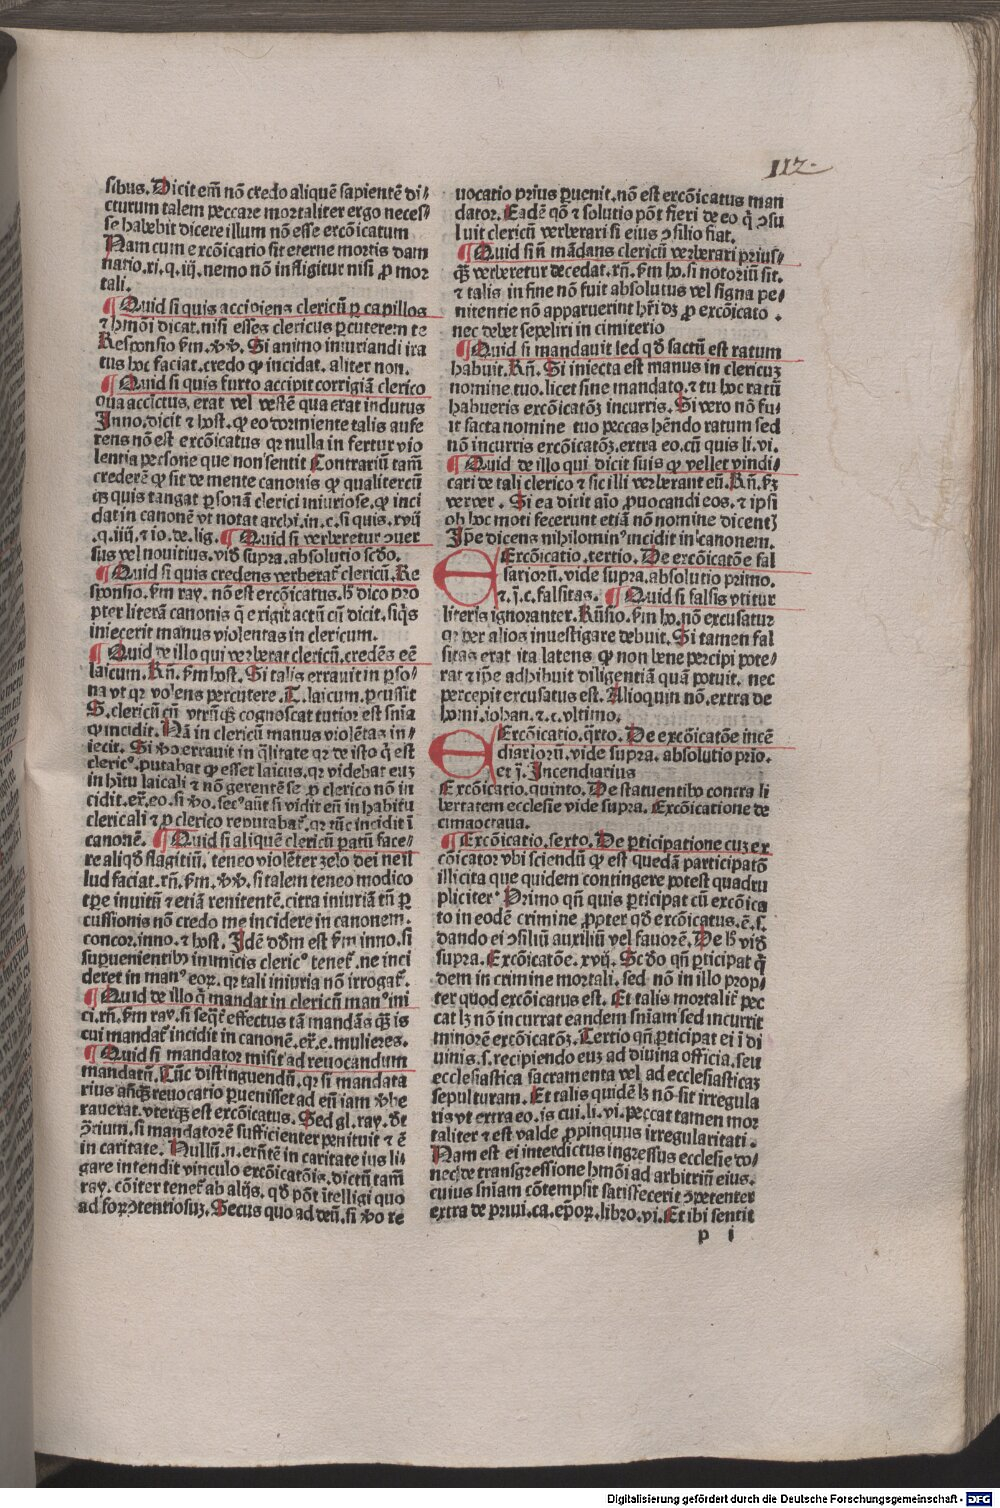 112.
sibus. Dicit em̄ nō credo aliquē sapientē di-
cturum talem peccare mortaliter ergo neces-
se habebit dicere illum nō esse excōicatum
Nam cum excōicatio sit eterne mortis dam
natio. xi. q. iij. nemo nō infligitur nisi ꝓ mor
tali.
¶ Quid si quis accipiens clericū ꝑ capillos
⁊ hmōi dicat. nisi esses clericus ꝑcuterem te
Responsio ẜm. W. Si animo iniuriandi ira
tus hoc faciat. credo ꝙ incidat. aliter non.
¶ Quid si quis furto accipit corrigiā clerico
qua accīctus. erat vel vestē qua erat indutus
Inno. dicit ⁊ host. ꝙ eo dormiente talis aufe
rens nō est excōicatus qr nulla in fertur vio
lentia persone que non sentit Contrariū tam̄
crederē ꝙ sit de mente canonis ꝙ qualitercū
qꝫ quis tangat ꝑsonā clerici iniuriose. ꝙ inci
dat in canonē vt notat archi. in. c. si quis. xvij
.q. iiij. ⁊ io. de. lig. ¶ Quid si verberetur ꝯuer
sus vel nouitius. vid̄ supra. absolutio scd̄o.
¶ Quid si quis credens verberat̉ clericū. Re
sponsio. ẜm ray. nō est excōicatus. hͥ dico pro
pter literā canonis q̄ exigit actū cū dicit. siq̇s
iniecerit manus violentas in clericum.
¶ Quid de illo qui verberat clericū. credēs eē
laicum. Rn̄. ẜm host. Si talis errauit in ꝑso-
na vt qr volens percutere. T. laicum. ꝑcussit
S. clericū cū vtrūqꝫ cognoscat tutior est sn̄ia
ꝙ incidit. Nā in clericū manus violētas in-
iecit. Si ꝟo errauit in q̄litate qr de isto q̇ est
cleric⁹. putabat ꝙ esset laicus. qr videbat euꝫ
in hītu laicali ⁊ nō gerentē se ꝓ clerico nō in
cidit. ex̄. eo. si ꝟo. sec⁹ aūt si vidit eū in habitu
clericali ⁊ ꝓ clerico reputabat̉. qr tūc incidit ī
canonē. ¶ Quid si aliquē clericū ꝑatū face-
re aliqd̄ flagitiū. teneo violēter zelo dei ne il
lud faciat. rn̄. ẜm. W. si talem teneo modico
tꝑe inuitū ⁊ etiā renitentē. citra iniuriā tn̄ ꝑ
cussionis nō credo me incidere in canonem.
concor. inno. ⁊ host. Idē dd̄m est ẜm inno. si
supuenientibꝫ inimicis cleric⁹ tenet̉. ne inci
deret in man⁹ eoꝝ. qr tali iniuria nō irrogat̉.
¶ Quid de illo q̇ mandat in clericū man⁹ ini
ci. rn̄. ẜm ray. si seq̇t̉ effectus tā mandās qꝫ is
cui mandat̉ incidit in canonē. ex̄. e. mulieres.
¶ Quid si mandator misit ad reuocandum
mandatū. Tūc distinguendū. qr si mandata
rius anqꝫ reuocatio ꝑuenisset ad eū iam ꝟbe
rauerat. vterqꝫ est excōicatus. Sed gl. ray. dt̄
ꝯrium. si mandatorē sufficienter penituit ⁊ ē
in caritate. Nullū. n. exn̄tē in caritate ius li-
gare intendit vinculo excōicatōis. dictū tam̄
ray. cōiter tenet̉ ab alijs. qd̄ pōt ītelligi quo
ad foꝝ ꝯtentiosuꝫ. Secus quo ad deū. si ꝟo re
uocatio prius ꝑuenit. nō est excōicatus man
dator. Eadē qō ⁊ solutio pōt fieri de eo q̇ ꝯsu
luit clericū verberari si eius ꝯsilio fiat.
¶ Quid si n̄ mādans clericū verberari prius-
qꝫ verberetur decedat. rn̄. ẜm ho. si notoriū sit.
⁊ talis in fine nō fuit absolutus vel signa pe-
nitentie nō apparuerint hr̄i dꝫ ꝓ excōicato .
nec debet sepeliri in cimiterio
¶ Quid si mandauit sed qd̄ factū est ratum
habuit. Rn̄. Si iniecta est manus in clericuꝫ
nomine tuo. licet sine mandato. ⁊ tu hoc ratū
habueris excōicatōꝫ incurris. Si vero nō fu-
it facta nomine tuo peccas hn̄do ratum sed
nō incurris excōicatōꝫ. extra eo. cū quis li. vi.
¶ Quid de illo qui dicit suis ꝙ vellet vindi-
cari de tali clerico ⁊ sic illi verberant eū. Rn̄. ẜꝫ
verver . Si ea dixit aīo ꝓuocandi eos. ⁊ ipsi
ob hoc moti fecerunt etiā nō nomine dicentꝫ
Ipe dicens nihilomin⁹ incidit in canonem.
Excōicatio. tertio. De excōicatōe fal
sariorū. vide supra. absolutio primo.
⁊. j. c. falsitas. ¶ Quid si falsis vtitur
literis ignoranter. Rn̄sio. ẜm ho. nō excusatur
qr per alios inuestigare debuit. Si tamen fal
sitas erat ita latens ꝙ non bene percipi pote-
rat ⁊ ip̄e adhibuit diligentiā quā potuit. nec
percepit excusatus est. Alioquin nō. extra de
homi. iohan. ⁊. c. vltimo.
Excōicatio. q̄rto. De excōicatōe incē
diariorū. vide supra. absolutio prīo.
et j. Incendiarius
Excōicatio. quinto. De statuentibꝫ contra li
bertatem ecclesie vide supra. Excōicatione de
cimaoctaua.
¶ Excōicatio. sexto. De ꝑticipatione cuꝫ ex
cōicator vbi sciendū ꝙ est quedā participatō
illicita que quidem contingere potest quadru
pliciter⁹ Primo qn̄ quis ꝑticipat cū excōica
to in eodē crimine ꝓpter qd̄ excōicatus. ē. s.
dando ei ꝯsiliū auxiliū vel fauorē. De hͥ vid̄
supra. Excōicatōe. xvij. Scd̄o qn̄ ꝑticipat q̇
dem in crimine mortali. sed nō in illo prop-
ter quod excōicatus est. Et talis mortalit̉ pec
cat lꝫ nō incurrat eandem sn̄iam sed incurrit
minorē excōicatōꝫ. Tertio qn̄ ꝑticipat ei ī di
uinis. s. recipiendo euꝫ ad diuina officia. seu
ecclesiastica sacramenta vel ad ecclesiasticaꝫ
sepulturam. Et talis quidē lꝫ nō sit irregula
ris vt extra eo. is cui. li. vi. peccat tamen mor
taliter ⁊ est valde ꝓpinquus irregularitati .
Nam est ei interdictus ingressus ecclesie do-
nec de transgressione hmōi ad arbitriū eius.
cuius sn̄iam cōtempsit satisfecerit ꝯpetenter
extra de priui. ca. ep̄oꝝ. libro. vi. Et ibi sentit
p i
Digitalisierung gefördert durch die Deutsche Forschungsgemeinschaft - DFG